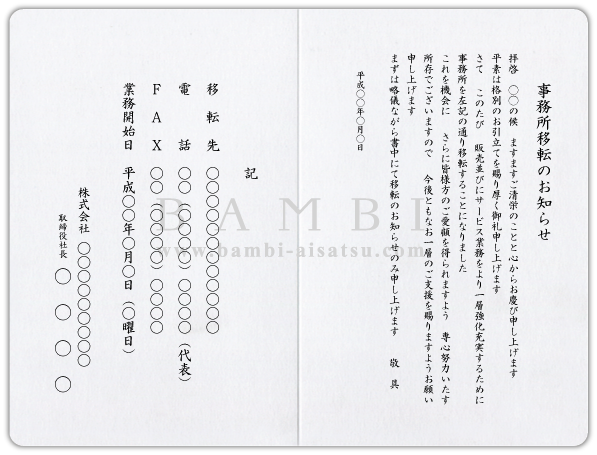 事務所移転のお知らせ
拝啓　〇〇の候　ますますご清栄のことと心からお慶び申し上げます
平素は格別のお引立てを賜り厚く御礼申し上げます
さて　このたび　販売並びにサービス業務をより一層強化充実するために
事務所を左記の通り移転することになりました
これを機会に　さらに皆様方のご愛顧を得られますよう　専心努力いたす
所存でございますので　今後ともなお一層のご支援を賜りますようお願い
申し上げます
まずは略儀ながら書中にて移転のお知らせのみ申し上げます　敬具
平成〇〇年〇月〇日
記
移転先　〇〇〇〇〇〇〇〇〇〇〇〇
電話　〇〇（〇〇〇〇）〇〇〇〇（代表）
FAX　〇〇（〇〇〇〇）〇〇〇〇
業務開始日　平成〇〇年〇月〇日（〇曜日）
株式会社　〇〇〇〇〇〇〇〇
取締役社長　〇〇〇〇
BAMBI
www.bambi-aisatsu.com